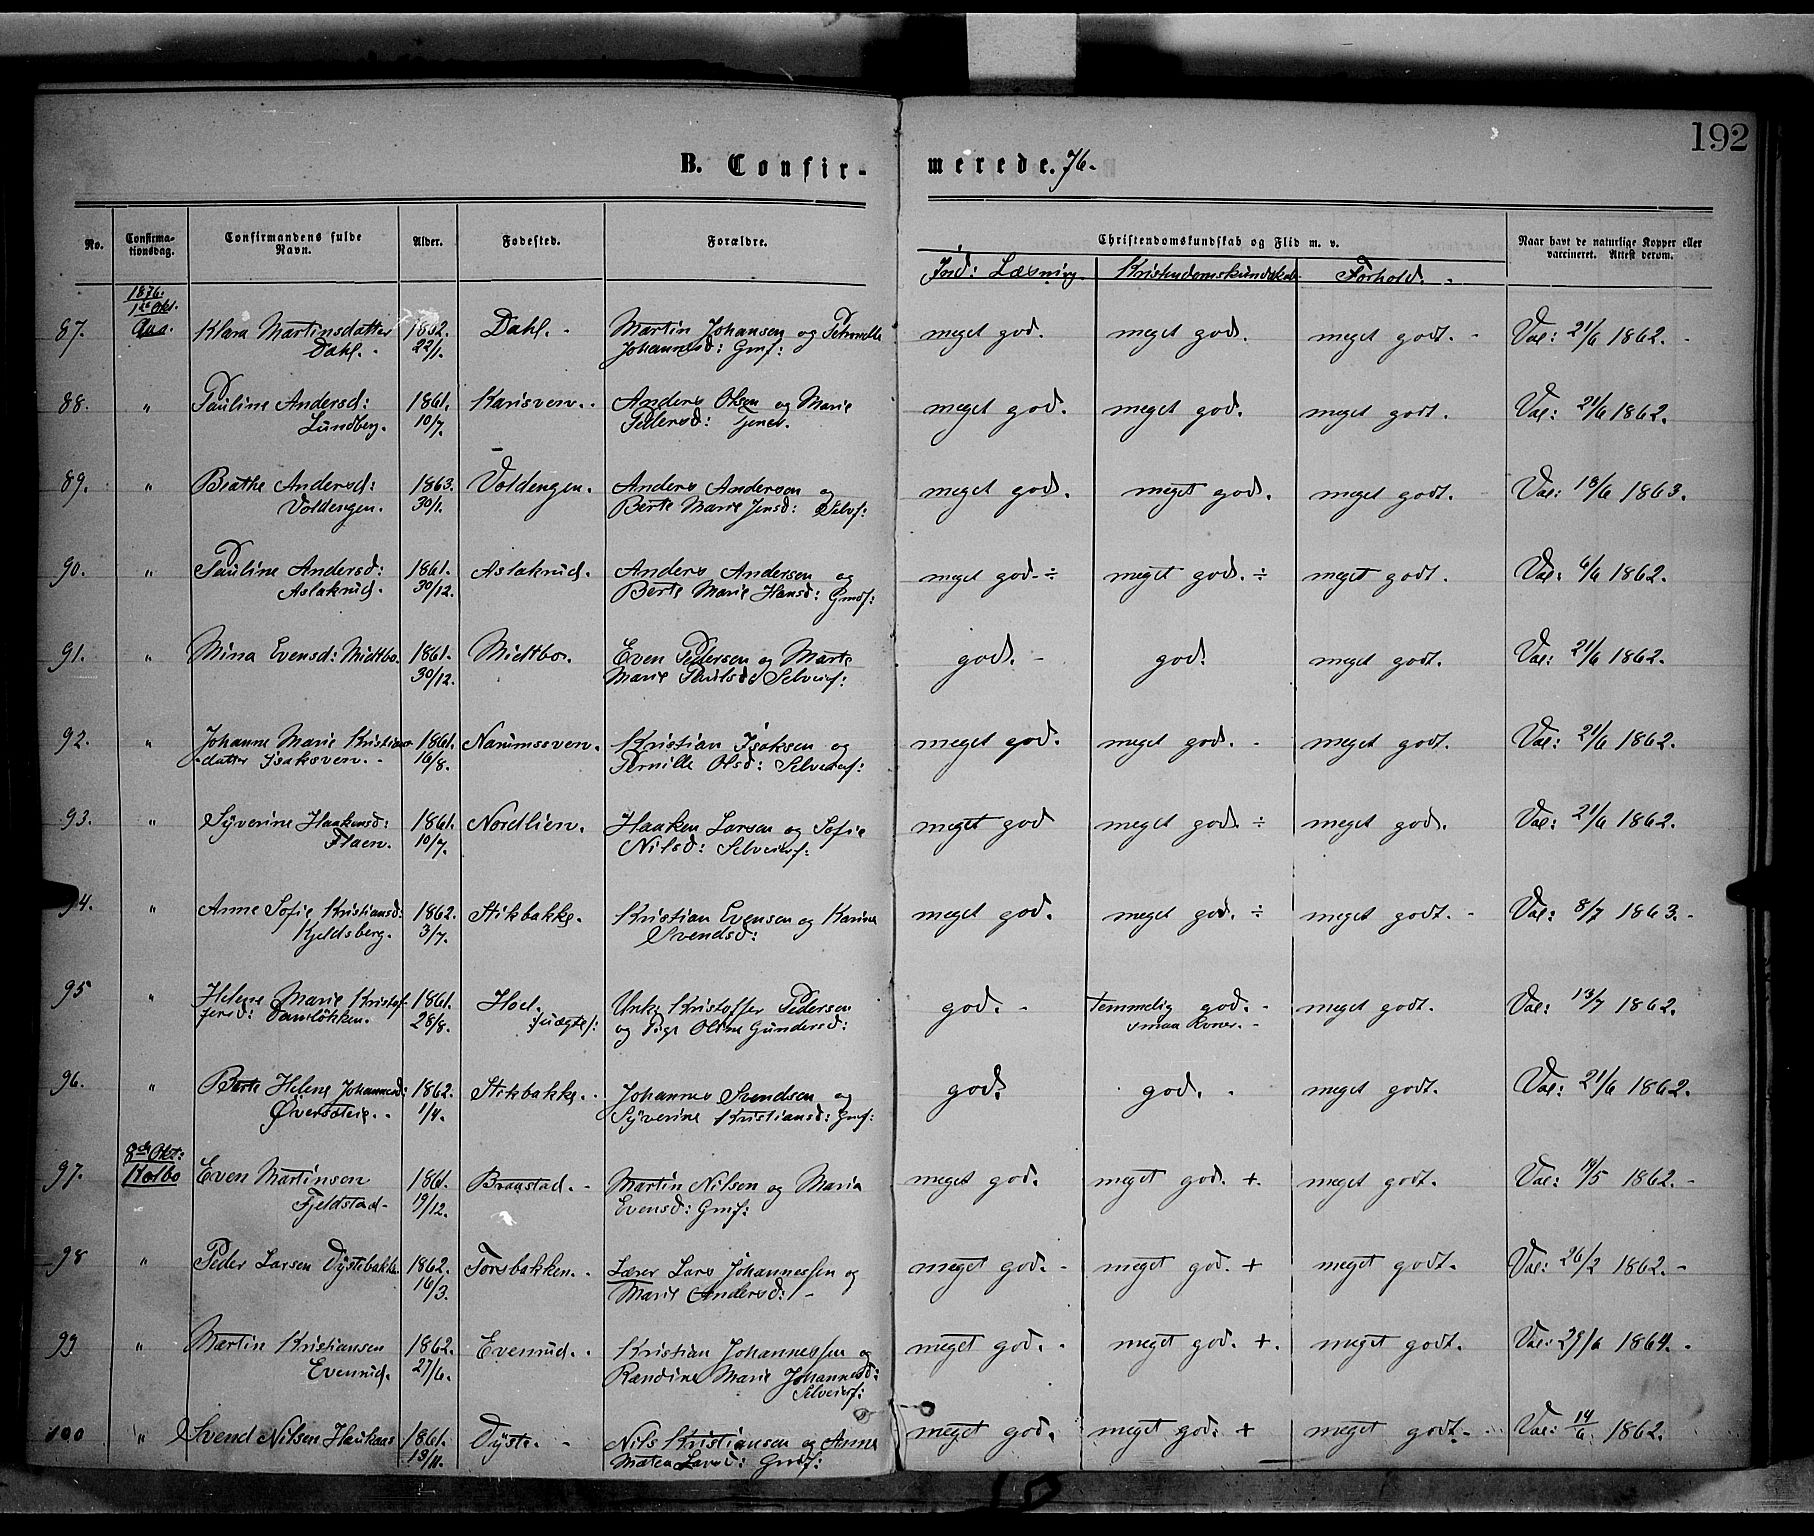 192
B. Confirmerede. 76.
No. Confirmationsdag. Confirmandens fulde Navn. Alder. Fødested. Forældre. Christendomskundskab og Flid m. v. Naar havt de naturlige Kopper eller vaccineret. Attest derom.
Ind: Læsning Kristendomskundskab Forhold.
1876.
1ste Okt.
Aas.
87. Klara Martinsdatter 1862. Dahl. Martin Johansen og Petronelle meget god. meget god. meget godt. Vac: 21/6 1862.
Dahl. 22/1. Johannesd: Gmf:
88. " Pauline Andersd: 1861. Karisveen. Anders Olsen og Marie meget god. meget god. meget godt. Vac: 21/6 1862.
Lundberg. 10/7. Pedersd:
89. " Beathe Andersd: 1863. Voldengen. Anders Andersen og meget god. meget god. meget godt. Vac: 18/6 1863.
Voldengen. 30/1. Berte Marie Jensd: Selvf:
90. " Pauline Andersd: 1861. Aslakrud. Anders Andersen og meget god. ÷ meget god. ÷ meget godt. Vac: 6/6 1862.
Aslakrud. 30/12. Berte Marie Hansd: Gmdf:
91. " Mina Evensd: Midtbo. 1861. Midtbo. Even Pedersen og Marte god. god. meget godt. Vac: 21/6 1862.
30/12. Marie Paulsd Selveierf:
92. " Johanne Marie Kristians- 1861. Narumsveen. Kristian Isaksen og meget god. meget god. meget godt. Vac: 21/6 1862.
datter Isaksveen. 16/8. Pernille Olsd: Selveierf:
93. " Syverine Haakensd: 1861. Nordlien. Haaken Larsen og Sofie meget god meget god. ÷ meget god. Vac: 21/6 1862.
Flaen. 10/7. Nilsd: Selveierf:
94. " Anne Sofie Kristiansd: 1862. Stikbakke. Kristian Evensen og Karine meget god. meget god. ÷ meget godt. Vac: 8/7 1863.
Kjeldsberg. 3/7. Svendsd:
95 " Helene Marie Kristof- 1861. Hoel. Unk: Kristoffer Pedersen god. temmelig god. meget godt. Vac: 13/7 1862.
fersd: Damløkken. 28/8. Uægte: og Pige Oline Gundersd: smaa Evner.
96. " Berte Helene Johannesd: 1862. Stikbakke. Johannes Svendsen og god. god. meget godt. Vac: 21/6 1862.
Øversteie. 1/4. Syverine Kristiansd: Gmf:
8de Okt:
97. Kolbo Even Martinsen 1861. Braastad. Martin Nilsen og Maria meget god. meget god. +. meget godt. Vac: 14/5 1862.
Fjeldstad. 19/12. Evensd: Gmf:
98 " Peder Larsen Dystebakke. 1862. Torsbakken. Lærer Lars Johannessen og meget god. meget god. + meget godt. Vac: 26/2 1862.
16/3. Marie Andersd:
99 " Martin Kristiansen 1862. Evenrud. Kristian Johannessen og meget god. meget god. +. meget godt. Vac: 29/6 1864.
Evenrud. 27/6. Randine Marie Johannesd:
Selveierf:
100 " Svend Nilsen Haukaas 1861. Dyste. Nils Kristiansen og Anne meget god. meget god. + meget godt. Vac: 14/6 1862.
13/11. Maten Larsd: Gmdf: